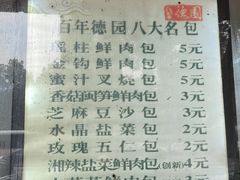 德園
百年德园八大名包
瑶柱鲜肉包 5元
金钩鲜肉包 5元
蜜汁叉烧包 5元
香菇闽笋鲜肉包 3元
芝麻豆沙包 3元
水晶盐菜包 2元
玫瑰五仁包 2元
湘辣盐菜鲜肉包(创新) 4元